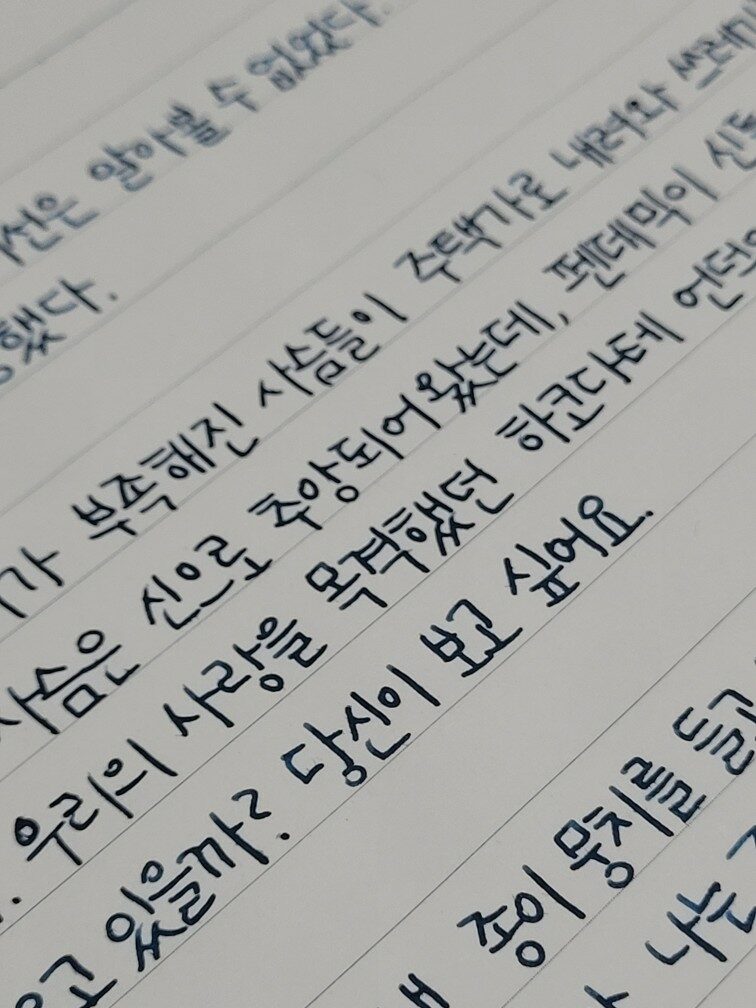 알아볼 수 없었다.
했다.
가 부족해진 사슴들이 주택가로 내려와
사슴은 신으로 추앙되어왔는데, 펜데믹이
우리의 사랑을 목격했던 하코다테
있을까? 당신이 보고 싶어요.
종이 뭉치를
나는